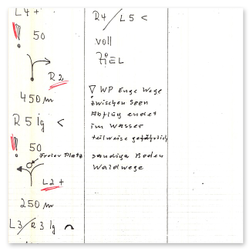 L4+
50
R2
450 m
R5 lg <
50
L2+
250 m
L3/R3 lg
R4/L5 <
voll
Ziel
▽ WP Enge Wege
zwischen Seen
Abflug endet
im Wasser
teilweise gefährlich
sandige Boden
Waldwege